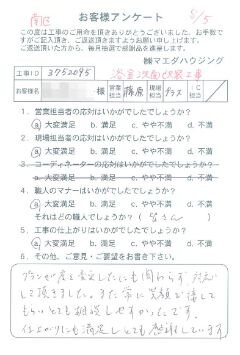 南区
8/5
お客様アンケート
この度は工事のご用命を頂きありがとうございました。お手数で
すがご記入頂き、ご返送頂きますようお願い申し上げます。
ご返送頂いた方から、毎月抽選で感謝品を進呈します。
㈱マエダハウジング
工事ID 39520095 浴室・洗面改装工事
様 営業担当 篠原 現場担当 プラス C担当
1. 営業担当者の応対はいかがでしたでしょうか?
a. 大変満足 b. 満足 c. やや不満 d. 不満
2. 現場担当者の応対はいかがでしたでしょうか?
a. 大変満足 b. 満足 c. やや不満 d. 不満
3. コーディネーターの応対はいかがでしたでしょうか?
a. 大変満足 b. 満足 c. やや不満 d. 不満
4. 職人のマナーはいかがでしたでしょうか?
a. 大変満足 b. 満足 c. やや不満 d. 不満
それはどの職人でしょうか?( 皆さん )
5. 工事の仕上がりはいかがでしたでしょうか?
a. 大変満足 b. 満足 c. やや不満 d. 不満
6. その他、ご意見・ご要望をお書き下さい。
プランが度々変更したにも関わらず 対応
して頂きました。また常に笑顔で接して
もらいとても相談しやすかったです。
仕上がりにも満足しとても感謝しています。